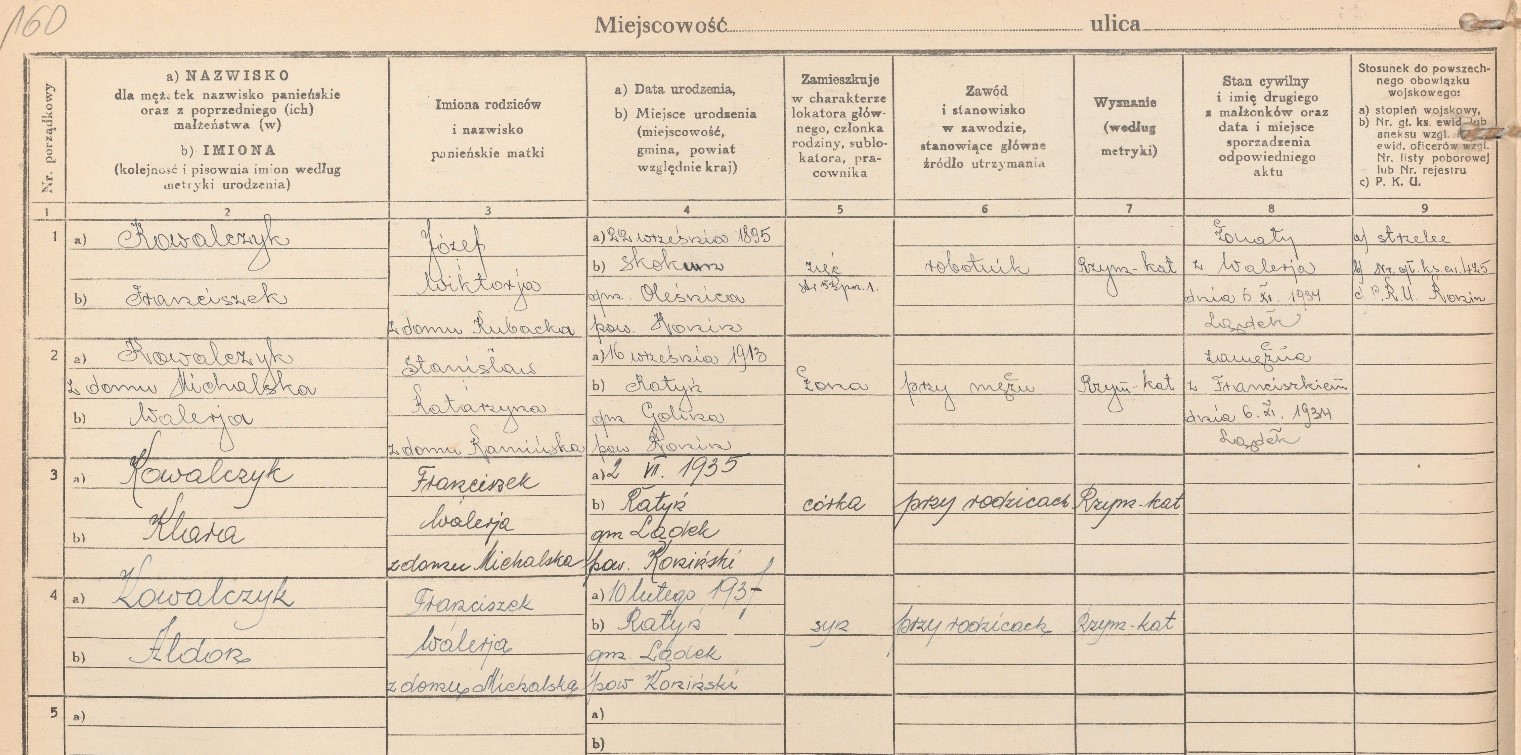 160
Miejscowość ulica
Nr. porządkowy
a) NAZWISKO
dla mężatek nazwisko panieńskie
oraz z poprzedniego (ich)
małżeństwa (w)
b) IMIONA
(kolejność i pisownia imion według
metryki urodzenia)
Imiona rodziców
i nazwisko
panieńskie matki
a) Data urodzenia,
b) Miejsce urodzenia
(miejscowość,
gmina, powiat
względnie kraj)
Zamieszkuje
w charakterze
lokatora głów-
nego, członka
rodziny, sublo-
katora, pra-
cownika
Zawód
i stanowisko
w zawodzie,
stanowiące główne
źródło utrzymania
Wyznanie
(według
metryki)
Stan cywilny
i imię drugiego
z małżonków oraz
data i miejsce
sporządzenia
odpowiedniego
aktu
Stosunek do powszech-
nego obowiązku
wojskowego:
a) stopień wojskowy,
b) Nr. gł. ks. ewid. lub
aneksu wzgl.
ewid. oficerów wzgl.
Nr. listy poborowej
lub Nr. rejestru
c) P. K. U.
1 2 3 4 5 6 7 8 9
1
a) Kowalczyk
b) Franciszek
Józef
Wiktorja
z domu Kubacka
a) 22 września 1895
b)
gm. Oleśnica
pow. Konin
zięć
robotnik
Rzym-kat
Żonaty
z Walerją
dnia 6 XI. 1934
Lądek
a) strzelec
b) Nr. gł. ks. ew. 1425
c P.K.U. Konin
2
a) Kowalczyk
z domu Michalska
b) Walerja
Stanisław
Katarzyna
z domu Kamińska
a) 16 września 1913
b) Ratyń
gm Golina
pow Konin
Żona
przy mężu
Rzym-kat
zamężna
z Franciszkiem
dnia 6. XI. 1934
Lądek
3
a) Kowalczyk
b) Khara
Franciszek
Walerja
z domu Michalska
a) 2 VII. 1935
b) Ratyń
gm Lądek
pow. Koniński
córka
przy rodzicach
Rzym-kat
4
a) Kowalczyk
b) Aldon
Franciszek
Walerja
z domu Michalska
a) 10 lutego 1937
b) Ratyń
gm. Lądek
pow Koniński
syn
przy rodzicach
Rzym-kat
5
a)
a)
b)